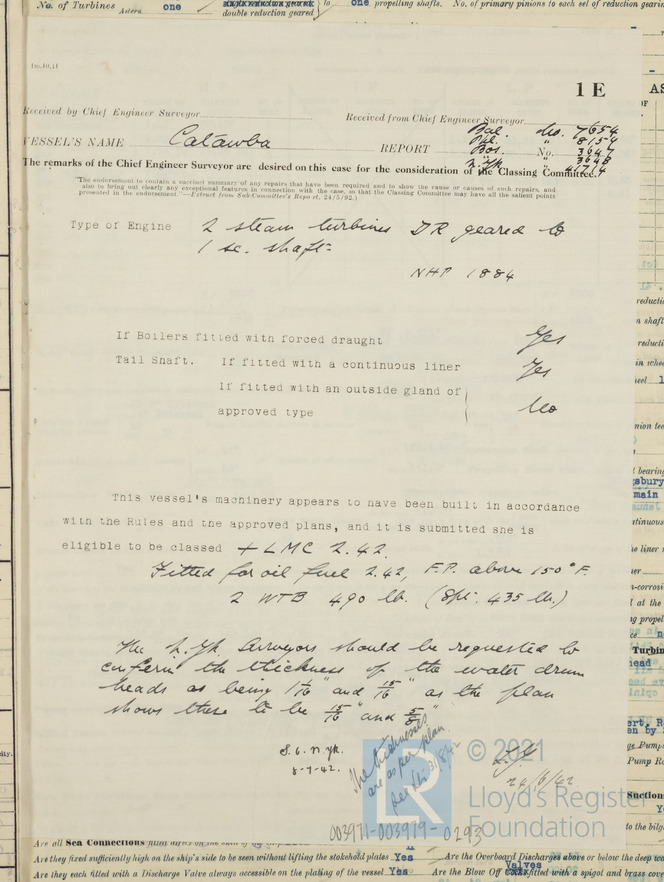 No. of Turbines Astern one double reduction geared to one propelling shafts. No. of primary pinions to each set of reduction gearin
1m.10,41
1 E
Received by Chief Engineer Surveyor
Received from Chief Engineer Surveyor
Bal. No. 7654
Pbl. " 8154
VESSEL'S NAME Catawba REPORT Bos. No. 3647
" " 3648
N.Yk. 4714
The remarks of the Chief Engineer Surveyor are desired on this case for the consideration of the Classing Committee.
"The endorsement to contain a succinct summary of any repairs that have been required and to show the cause or causes of such repairs, and
also to bring out clearly any exceptional features in connection with the case, so that the Classing Committee may have all the salient points
presented in the endorsement."—Extract from Sub-Committee's Report, 24/5/92.)
Type of Engine 2 steam turbines DR geared to
1 sc. shaft
NHP 1884
If Boilers fitted with forced draught Yes
Tail Shaft. If fitted with a continuous liner Yes
If fitted with an outside gland of
approved type No
This vessel's machinery appears to have been built in accordance
with the Rules and the approved plans, and it is submitted she is
eligible to be classed + LMC 2.42.
Fitted for oil fuel 2.42, F.P. above 150°F.
2 WTB 490 lb. (Spt. 435 lb.)
The N.Yk. Surveyors should be requested to
confirm the thickness of the water drum
heads as being 1 1/16" and 15/16" as the plan
shows these to be 15/16" and 5/8".
S.C. N.Yk.
8-7-42.
The thicknesses
are as per plan
31/8/42
24/6/42
© 2021
Lloyd's Register
Foundation
LR
003971-003979-0293
Are all Sea Connections
Are they fixed sufficiently high on the ship's side to be seen without lifting the stokehold plates Yes Are the Overboard Discharges above or below the deep
Are they each fitted with a Discharge Valve always accessible on the plating of the vessel Yes Are the Blow Off Valves fitted with a spigot and brass